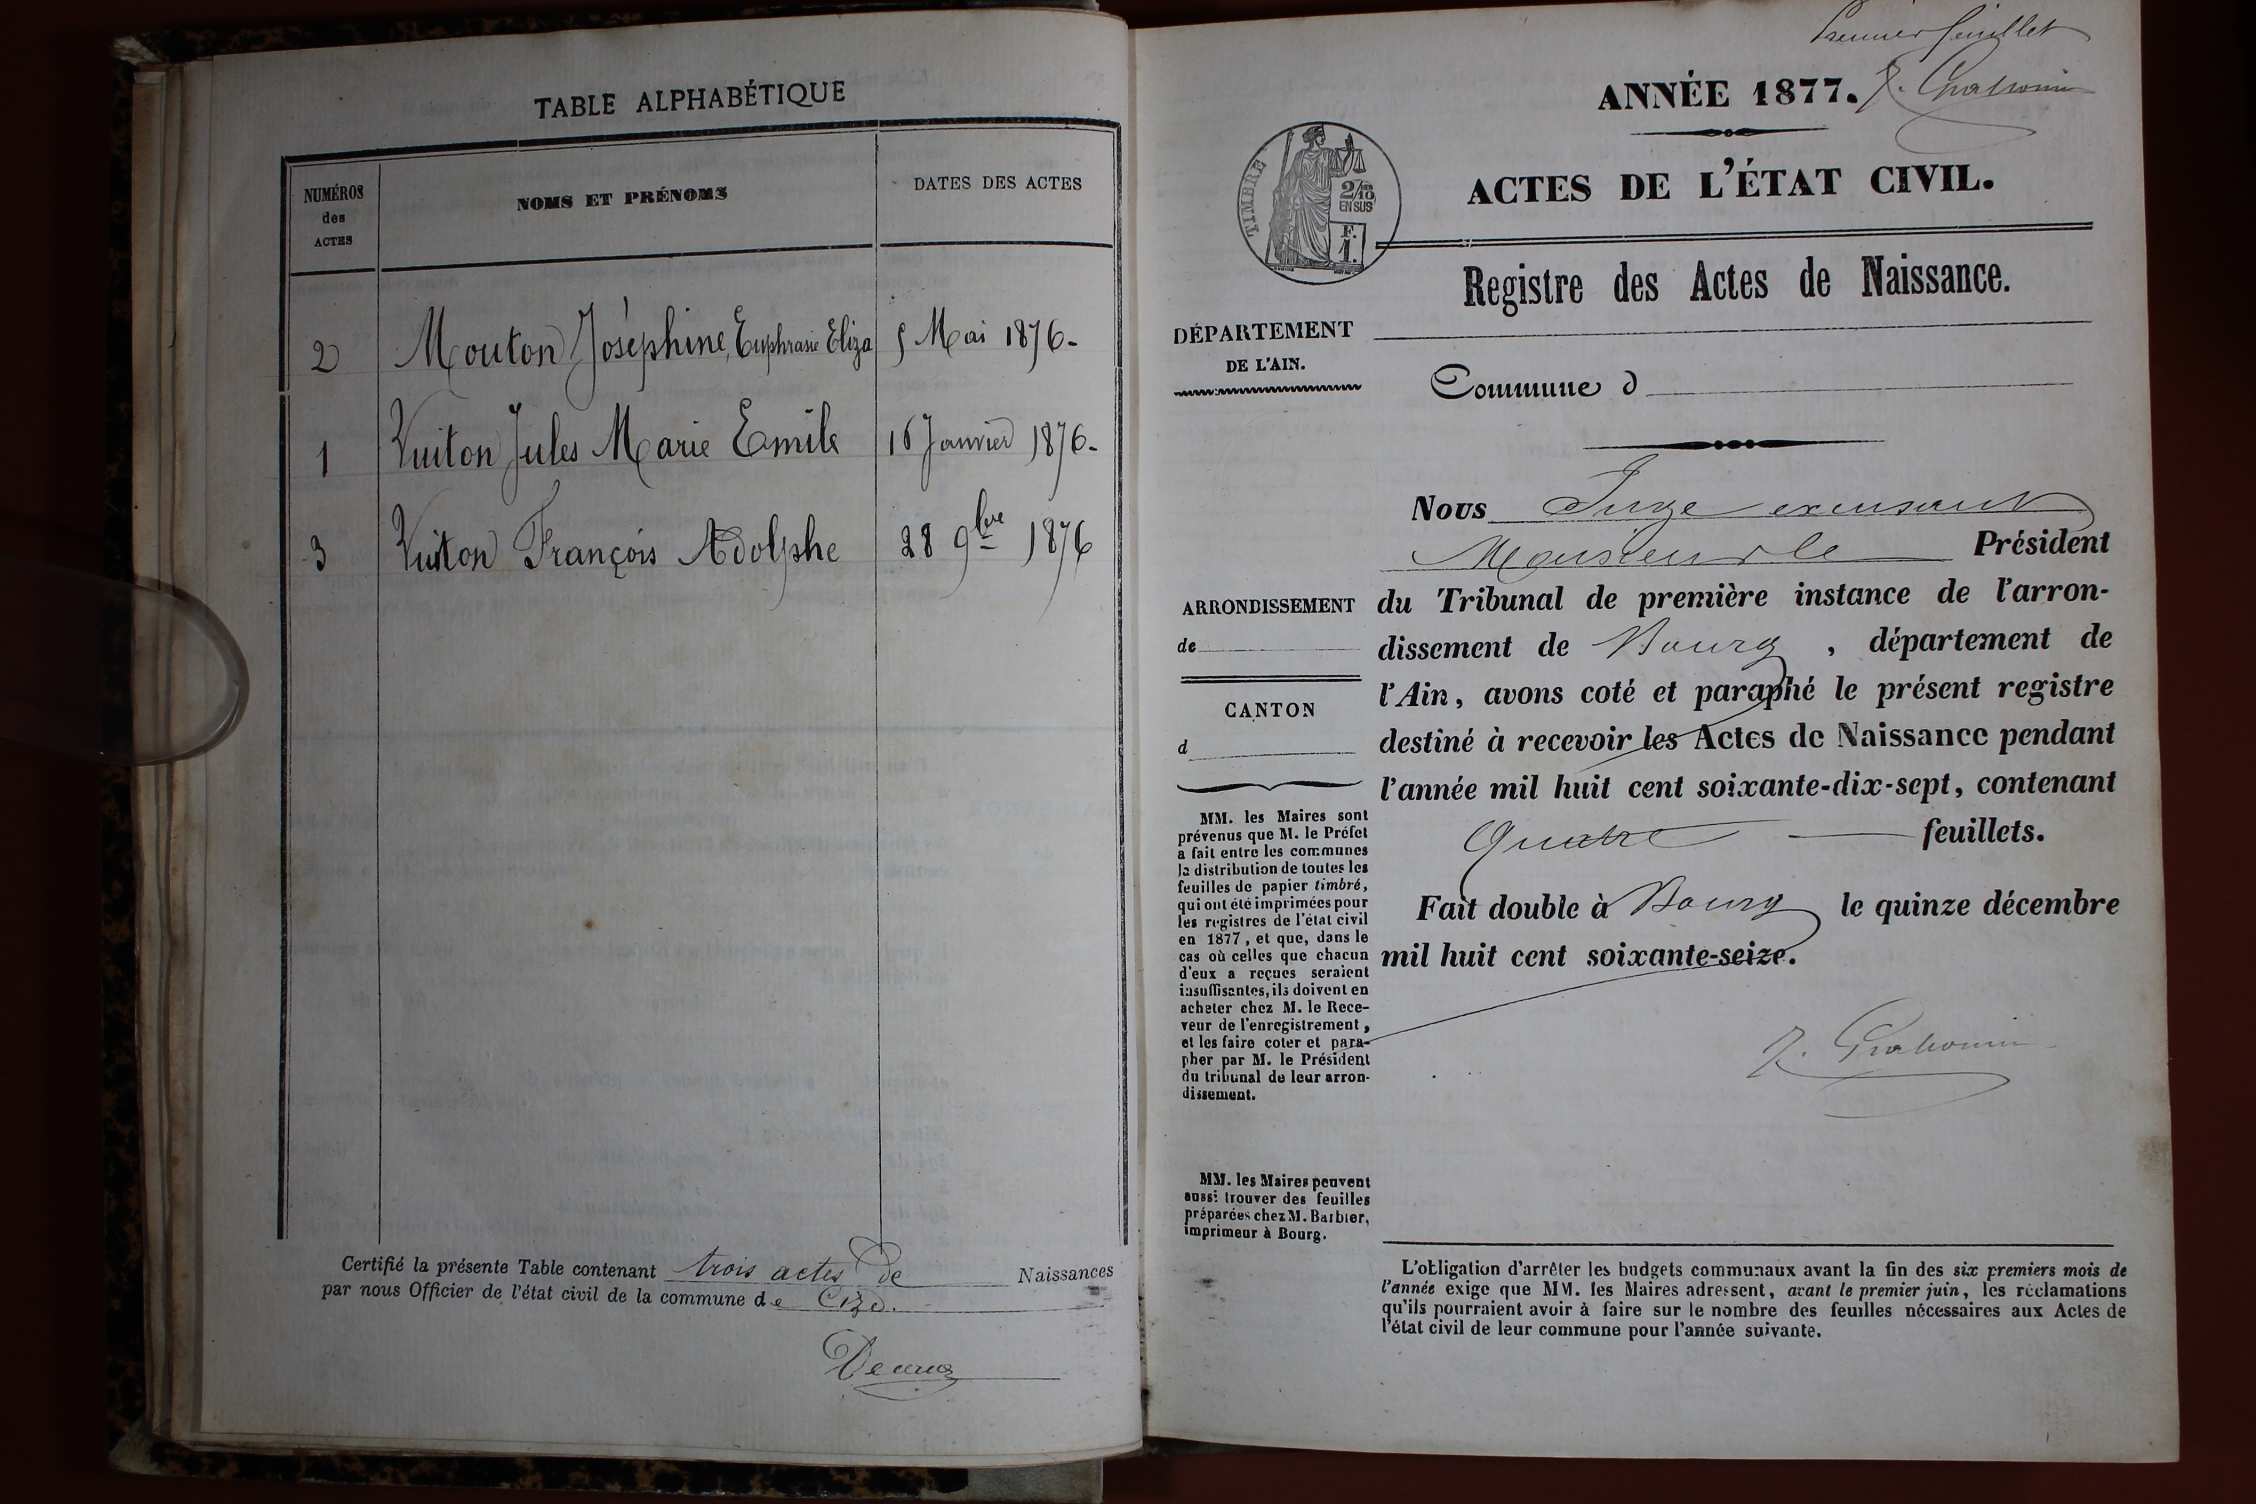 TABLE ALPHABÉTIQUE
NUMÉROS des ACTES
NOMS ET PRÉNOMS
DATES DES ACTES
2 Mouton Joséphine, Euphrasie Eliza 5 Mai 1876-
1 Vuiton Jules Marie Emile 16 Janvier 1876-
3 Vuiton François Adolphe 28 9bre 1876
Certifié la présente Table contenant trois actes de Naissances
par nous Officier de l'état civil de la commune de Cize.
Premier feuillet
ANNÉE 1877.
ACTES DE L'ÉTAT CIVIL.
TIMBRE
2/10 EN SUS
F. 1.
Registre des Actes de Naissance.
DÉPARTEMENT
DE L'AIN.
Commune d
Nous Juge excusant
Monsieur le Président
ARRONDISSEMENT
de
CANTON
d
du Tribunal de première instance de l'arron-
dissement de Bourg, département de
l'Ain, avons coté et paraphé le présent registre
destiné à recevoir les Actes de Naissance pendant
l'année mil huit cent soixante-dix-sept, contenant
quatre feuillets.
Fait double à Bourg le quinze décembre
mil huit cent soixante-seize.
MM. les Maires sont
prévenus que M. le Préfet
a fait entre les communes
la distribution de toutes les
feuilles de papier timbré,
qui ont été imprimées pour
les registres de l'état civil
en 1877, et que, dans le
cas où celles que chacun
d'eux a reçues seraient
insuffisantes, ils doivent en
acheter chez M. le Rece-
veur de l'enregistrement,
et les faire coter et para-
pher par M. le Président
du tribunal de leur arron-
dissement.
MM. les Maires peuvent
aussi trouver des feuilles
préparées chez M. Barbier,
imprimeur à Bourg.
L'obligation d'arrêter les budgets communaux avant la fin des six premiers mois de
l'année exige que MM. les Maires adressent, avant le premier juin, les réclamations
qu'ils pourraient avoir à faire sur le nombre des feuilles nécessaires aux Actes de
l'état civil de leur commune pour l'année suivante.